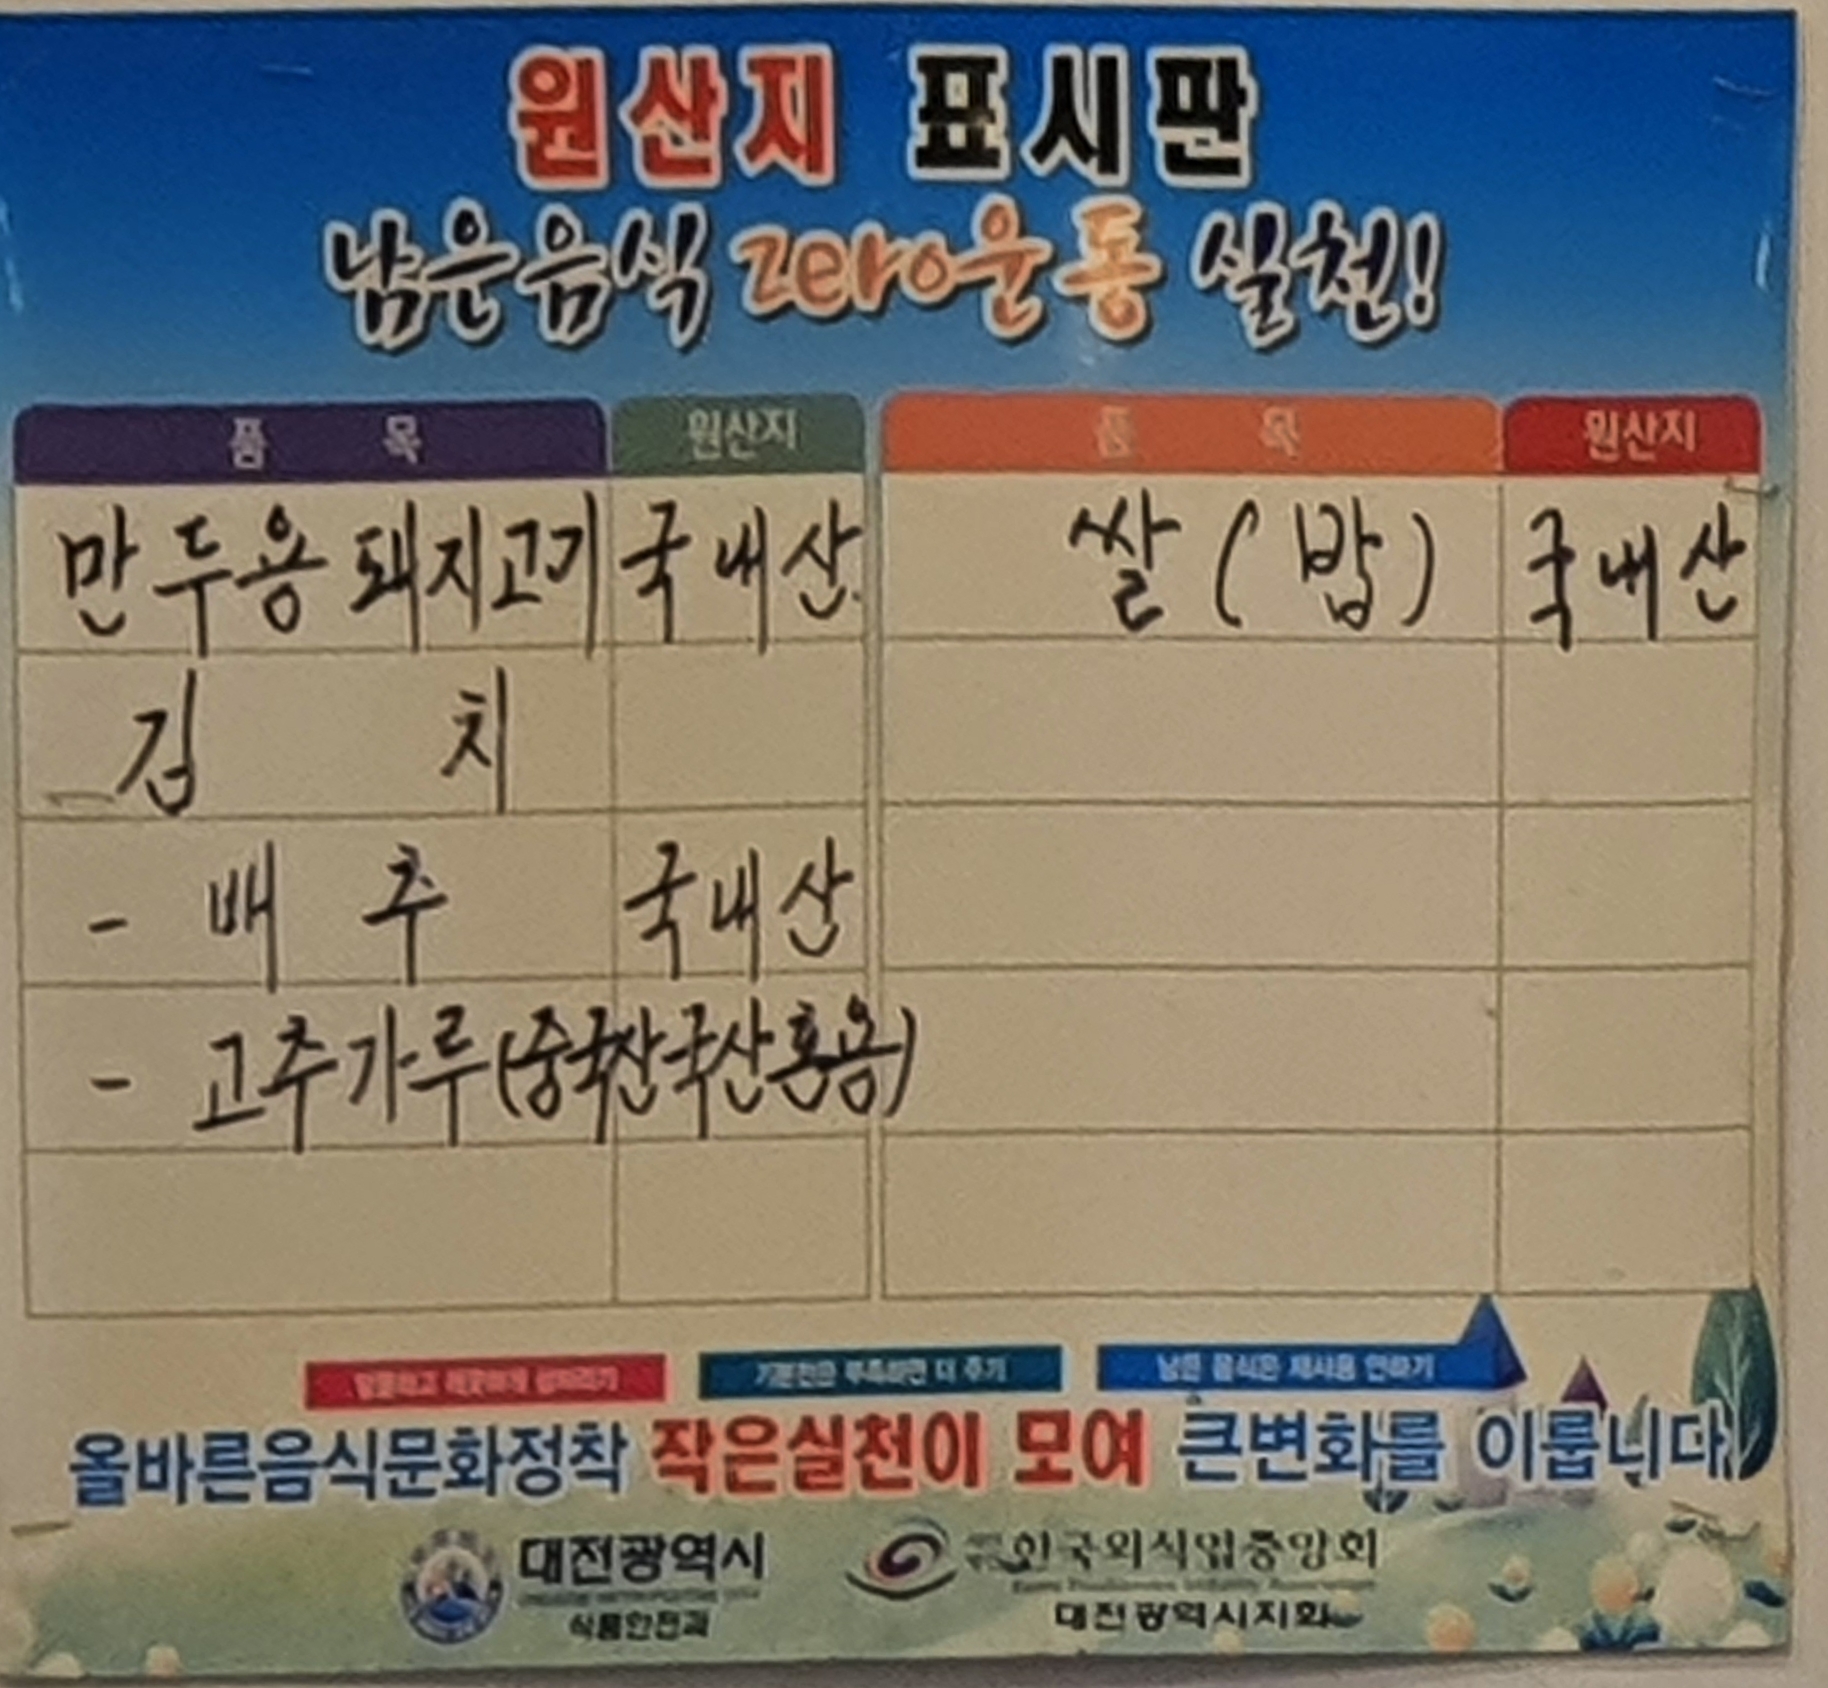 원산지 표시판
남은음식 zero운동 실천!
품 목 원산지 품 목 원산지
만두용 돼지고기 국내산 쌀(밥) 국내산
김 치
- 배 추 국내산
- 고추가루(중국산국산혼용)
기분전은 부족하면 더 주기 남은 음식은 재사용 안하기
올바른음식문화정착 작은실천이 모여 큰변화를 이룹니다
대전광역시 한국외식업중앙회
식품안전과 대전광역시지회